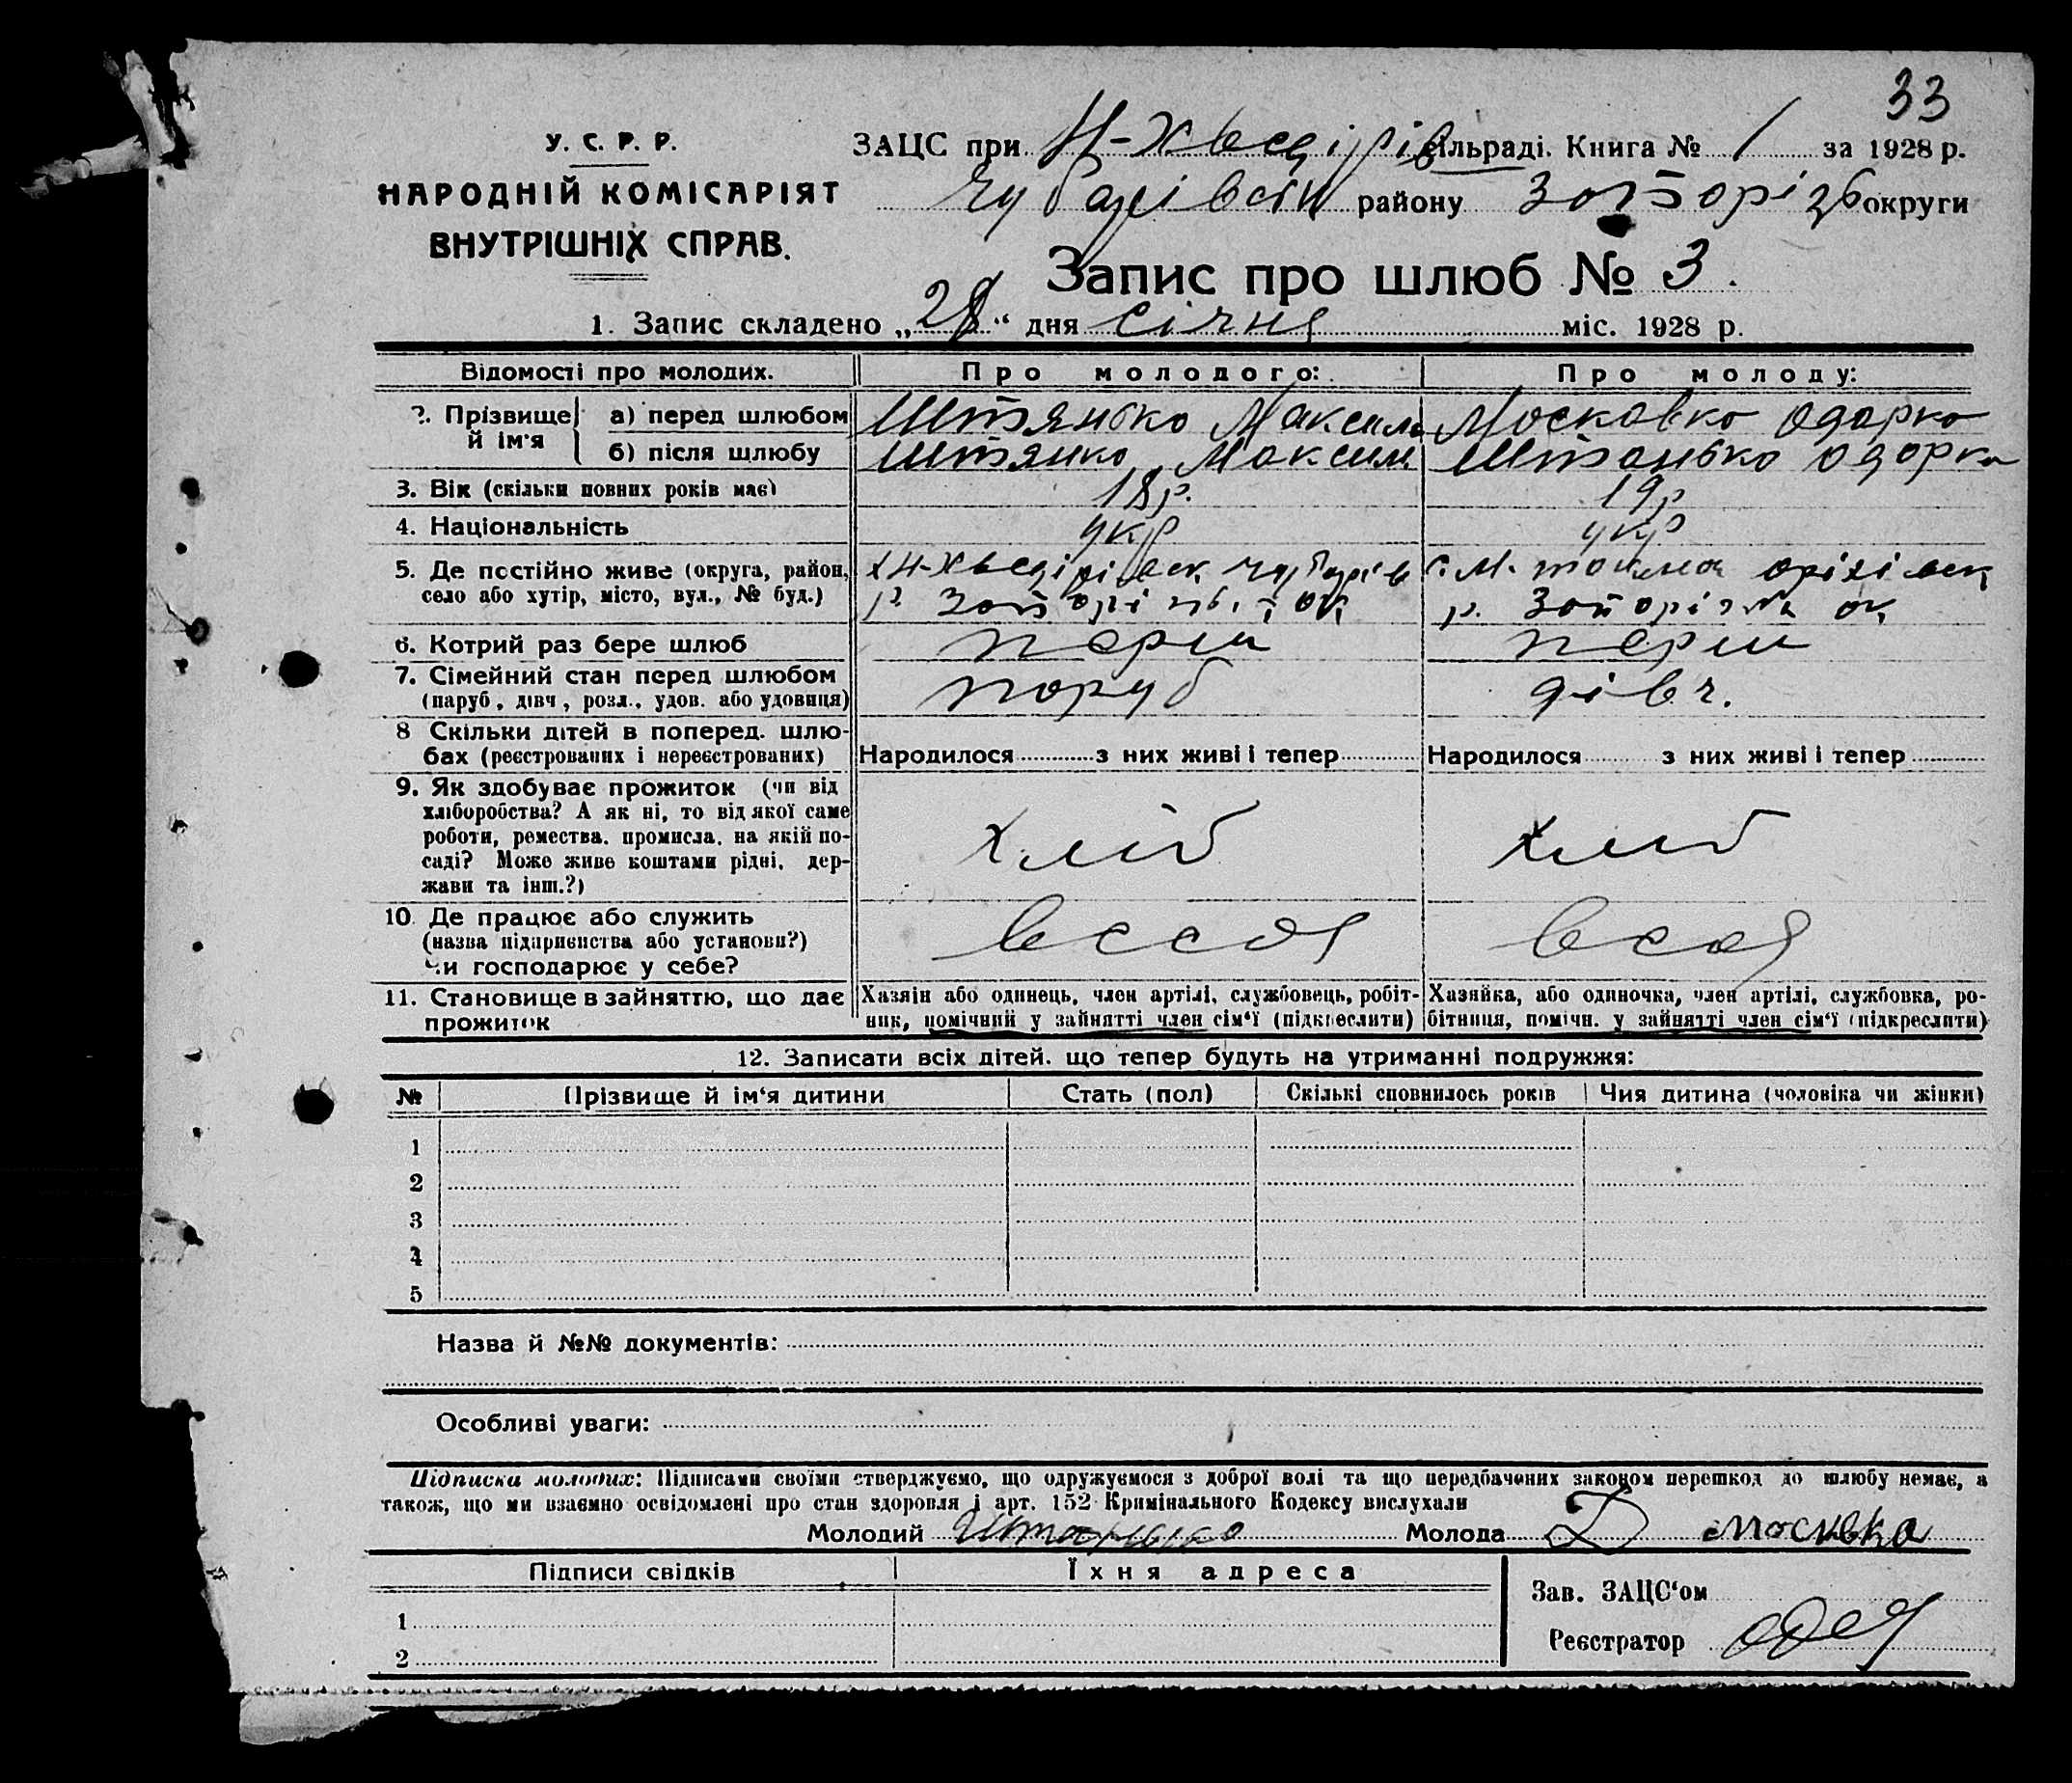 33
У. С. Р. Р.
НАРОДНІЙ КОМІСАРІЯТ
ВНУТРІШНІХ СПРАВ.
ЗАЦС при Н-Хведірів сільраді. Книга № 1 за 1928 р.
Чубарівськ району Запорізь округи
Запис про шлюб № 3.
1. Запис складено „28“ дня січня міс. 1928 р.
Відомості про молодих. Про молодого: Про молоду:
2. Прізвище й ім'я
а) перед шлюбом Штанько Максим Московко Одарко
б) після шлюбу Штанко Максим Штанько Одарка
3. Вік (скільки повних років має) 18 р. 19 р
4. Національність укр укр
5. Де постійно живе (округа, район, село або хутір, місто, вул., № буд.)
Н-Хведірівськ Чубарів р. Запорізьк ок
с. М. Токмач оріхівськ р. Запорізьк ок
6. Котрий раз бере шлюб перш перш
7. Сімейний стан перед шлюбом (паруб, дівч, розл., удов. або удовиця) поруб дівч.
8 Скільки дітей в поперед. шлюбах (реєстрованих і нереєстрованих)
Народилося з них живі і тепер Народилося з них живі і тепер
9. Як здобуває прожиток (чи від
хліборобства? А як ні, то від якої саме
роботи, ремества, промисла, на якій по-
саді? Може живе коштами рідні, дер-
жави та інш.?)
хліб хліб
10. Де працює або служить
(назва підприємства або установи?)
Чи господарює у себе?
11. Становище в зайняттю, що дає
прожиток
Хазяін або одинець, член артілі, службовець, робіт-
ник, помічний у зайнятті член сім'ї (підкреслити)
Хазяйка, або одиночка, член артілі, службовка, ро-
бітниця, помічн. у зайнятті член сім'ї (підкреслити)
12. Записати всіх дітей. що тепер будуть на утриманні подружжя:
№ Прізвище й ім'я дитини Стать (пол) Скількі сповнилось років Чия дитина (чоловіка чи жінки)
1
2
3
4
5
Назва й №№ документів:
Особливі уваги:
Підписка молодих: Підписами своїми стверджуємо, що одружуємося з доброї волі та що передбачених законом перешкод до шлюбу немає, а
також, що ми взаємно освідомлені про стан здоровля і арт. 152 Кримінального Кодексу вислухали
Молодий Штанько Молода Д Москвка
Підписи свідків Їхня адреса
1
2
Зав. ЗАЦС'ом
Реєстратор